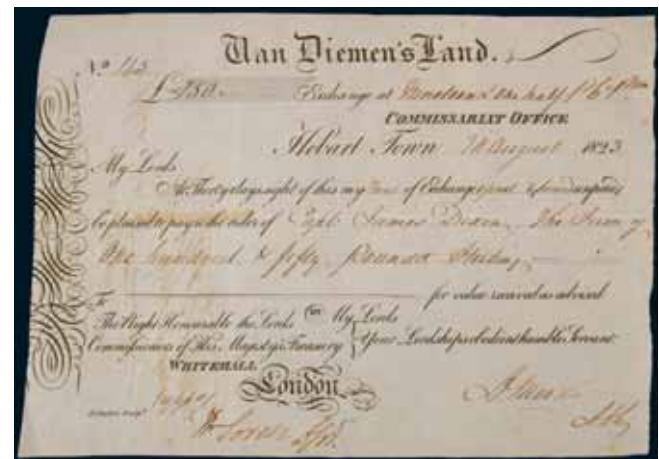 Van Diemen's Land.
No 163
£150 Exchange at
COMMISSARIAT OFFICE
Hobart Town August 1823
My Lords
At Thirty days sight of this my of Exchange
be pleased to pay to the order of Capt James Dixon The Sum of
One hundred & fifty Pounds Sterling
To for value received as advised
The Right Honourable the Lords My Lords
Commissioners of His Majesty's Treasury Your Lordships obedient humble Servant
WHITEHALL
London